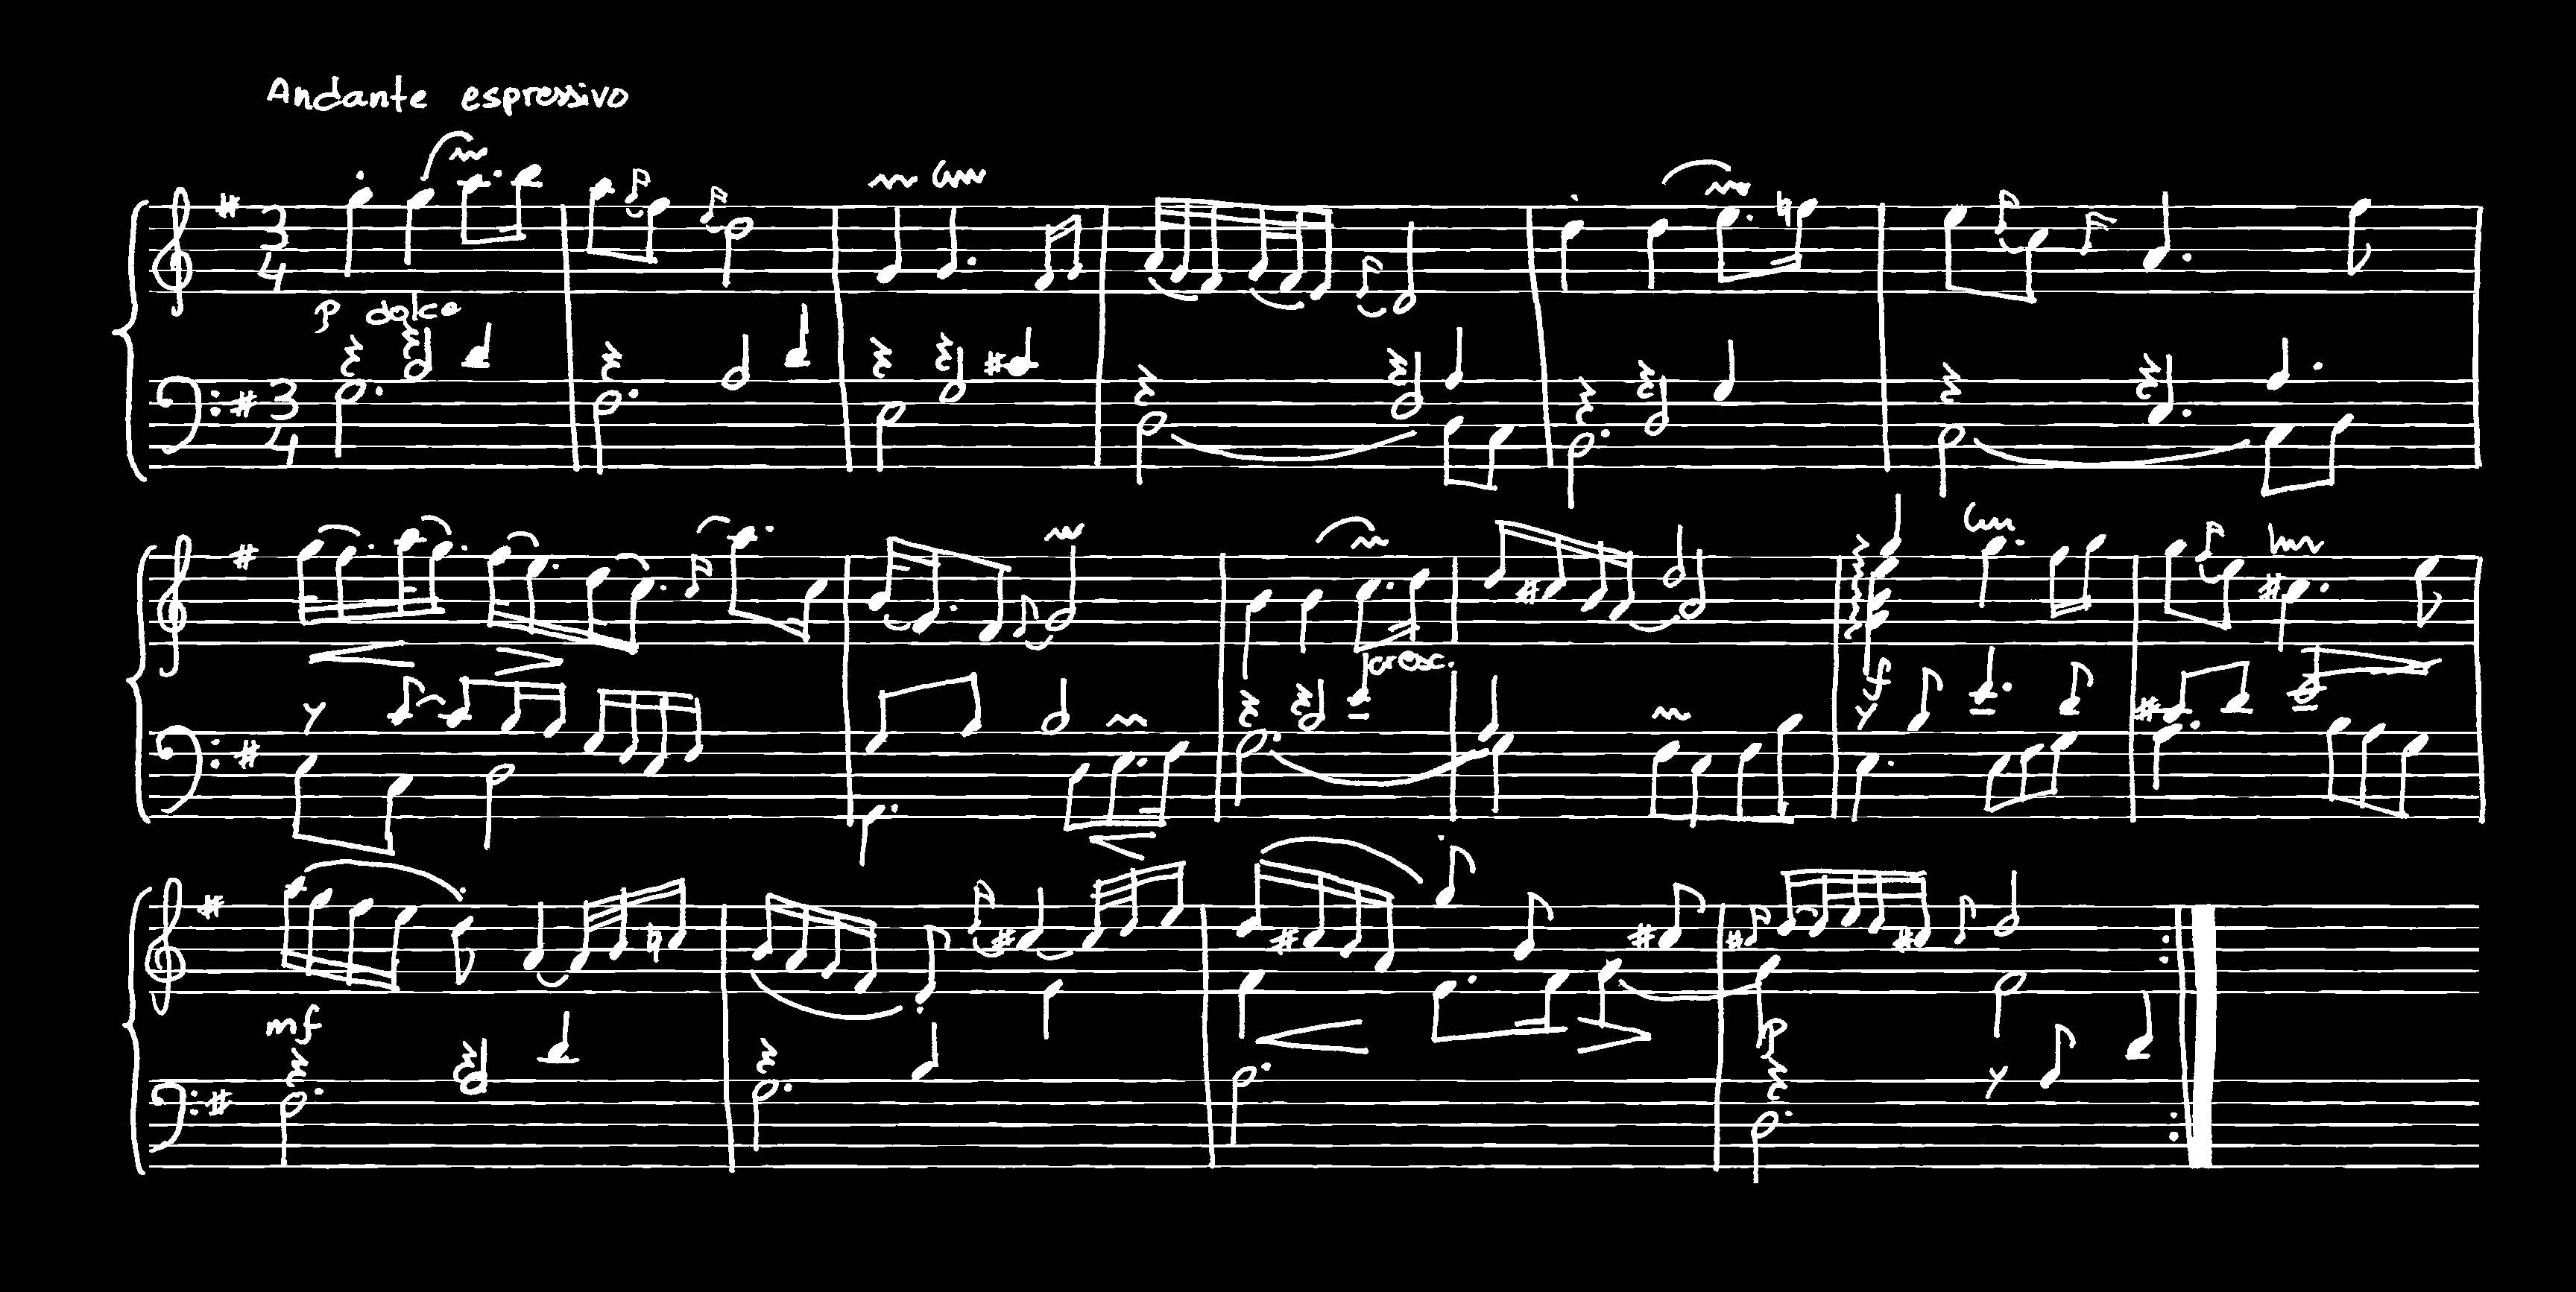 Andante espressivo
3 4
p dolce
3 4
cresc.
f
mf
p